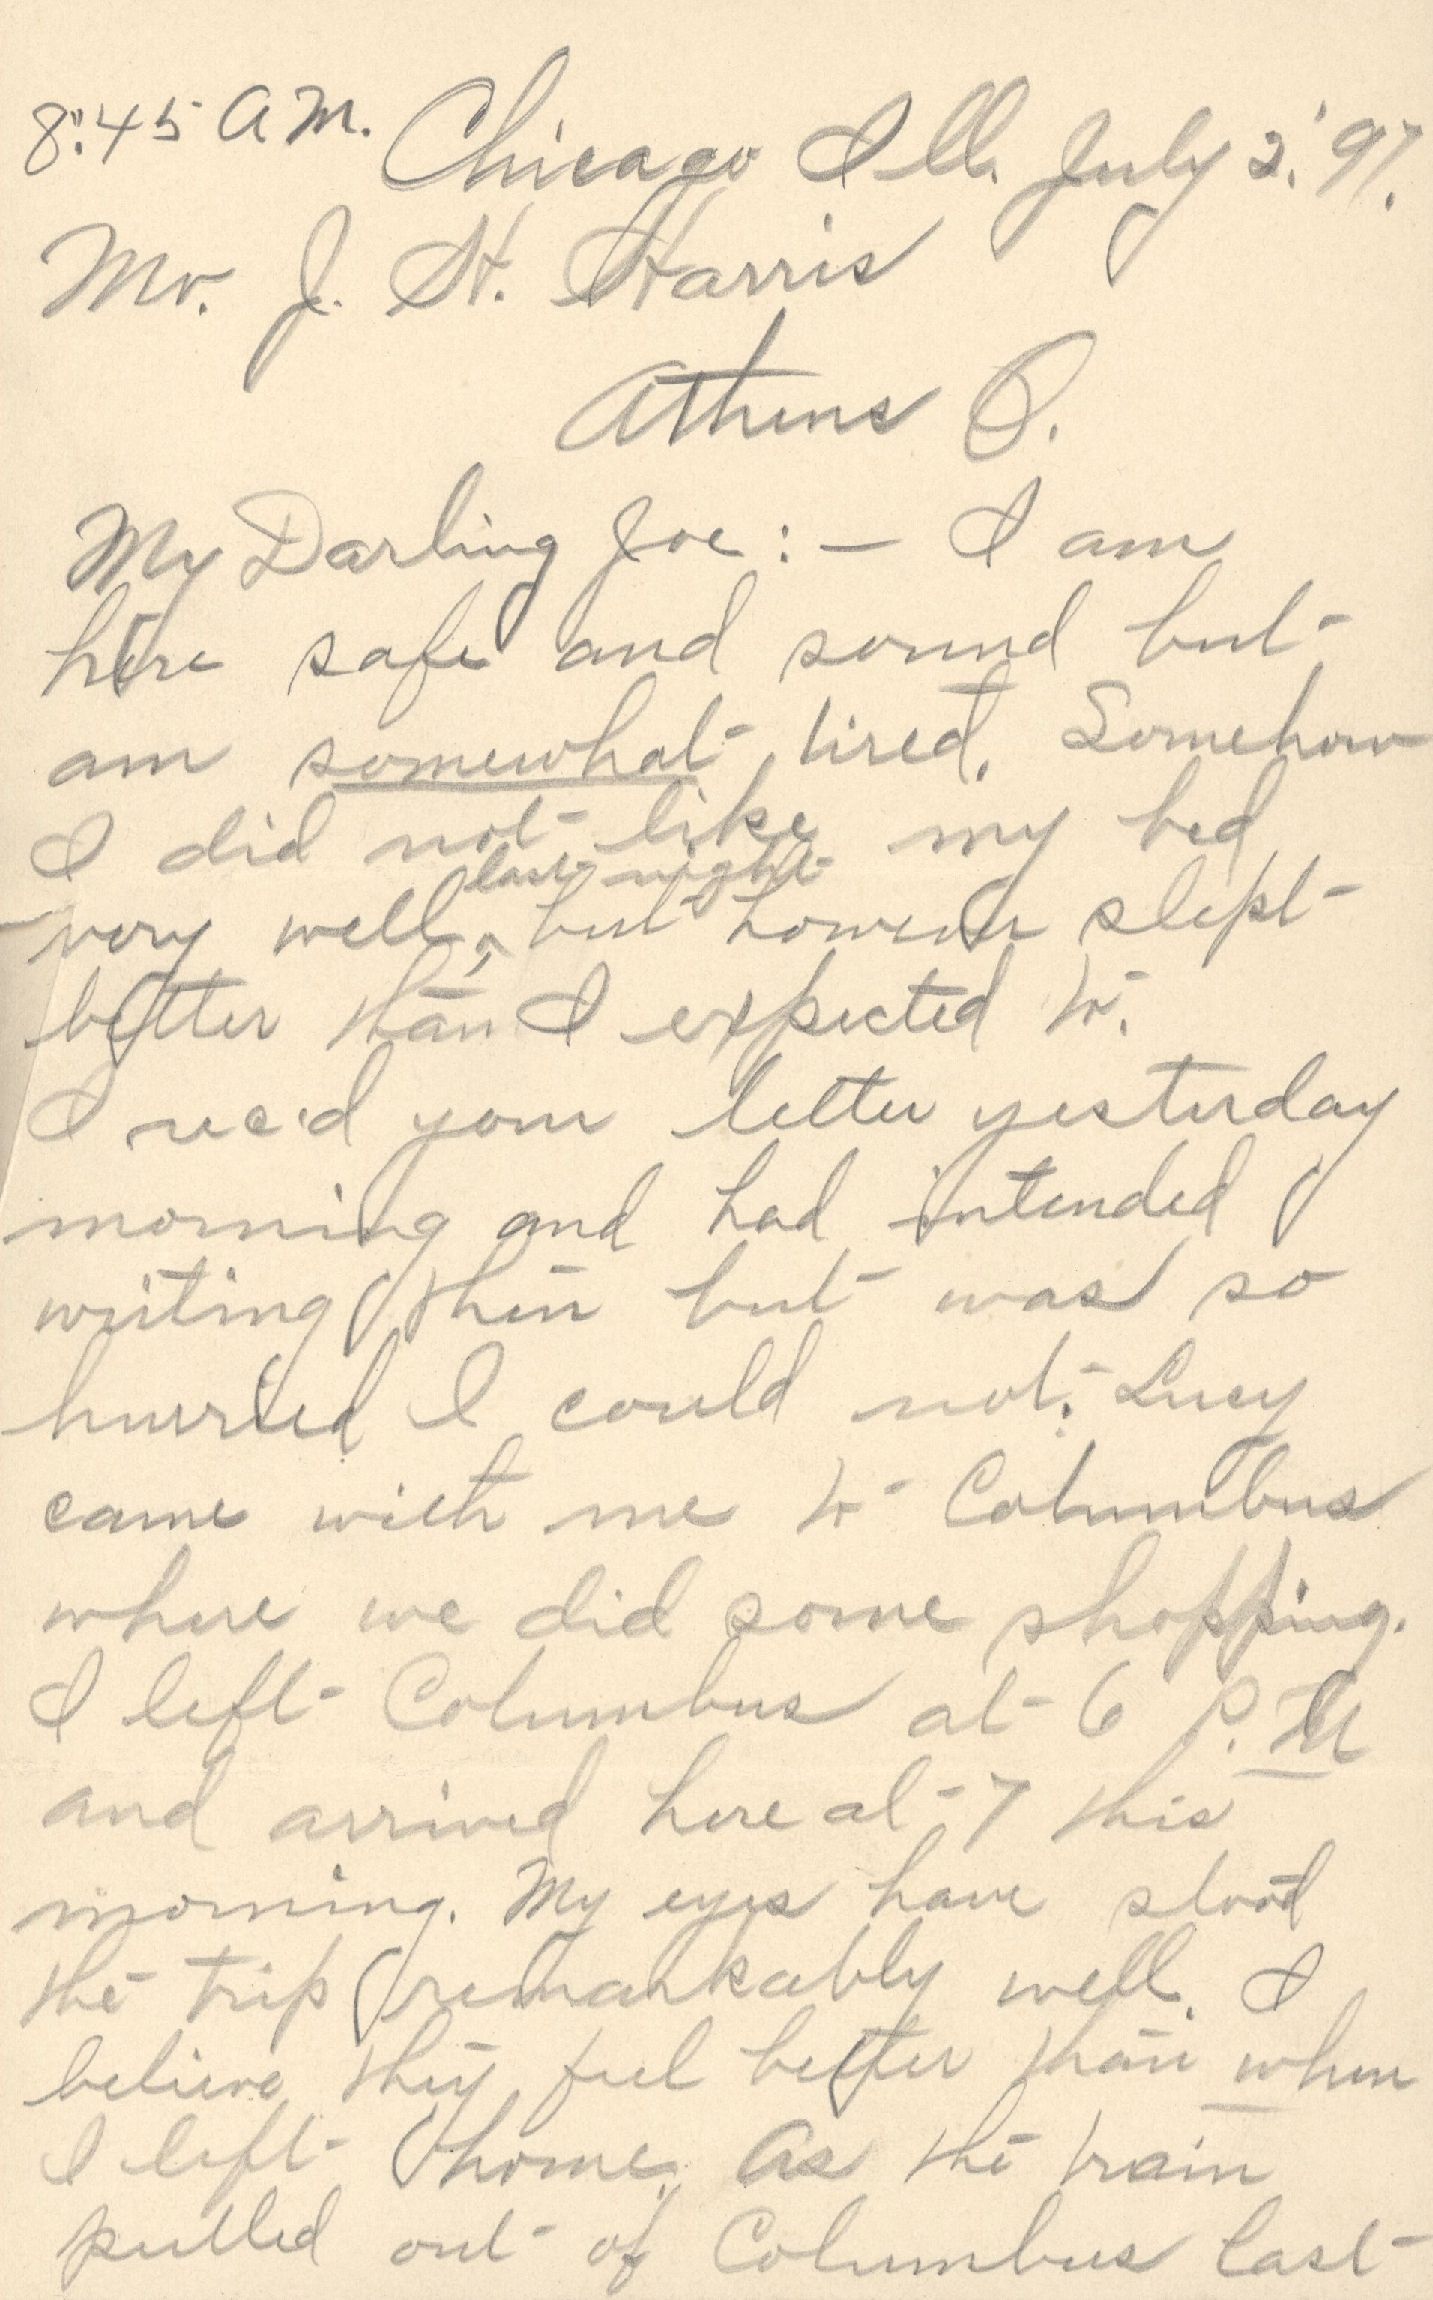 8:45 A.M. Chicago Ill. July 2, '97.
Mr. J. H. Harris
Athens O.
My Darling Joe:— I am
here safe and sound but
am somewhat tired. Somehow
I did not like my bed
last night
very well, but however slept
better than I expected to.
I rec'd your letter yesterday
morning and had intended
writing then but was so
hurried I could not. Lucy
came with me to Columbus
where we did some shopping.
I left Columbus at 6 P.M
and arrived here at 7 this
morning. My eyes have stood
the trip remarkably well. I
believe they feel better than when
I left home. As the train
pulled out of Columbus last